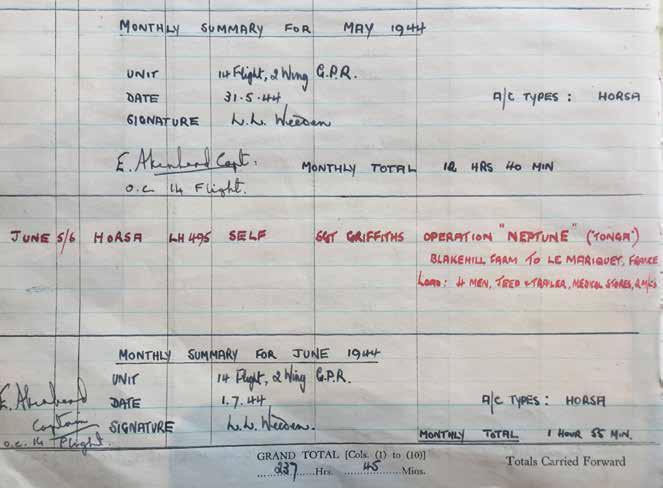 MONTHLY SUMMARY FOR MAY 1944
UNIT 14 Flight, 2 Wing G.P.R.
DATE 31.5.44 A/C TYPES: HORSA
SIGNATURE L.L. Weeden
E. Akenhead Capt. MONTHLY TOTAL 12 HRS 40 MIN
O.C. 14 Flight.
JUNE 5/6 HORSA LH 495 SELF SGT GRIFFITHS OPERATION "NEPTUNE" ('TONGA')
BLAKEHILL FARM TO LE MARIQUET, FRANCE
LOAD: 4 MEN, JEEP & TRAILER, MEDICAL STORES, 2 M/CS
MONTHLY SUMMARY FOR JUNE 1944
UNIT 14 Flight, 2 Wing G.P.R.
E. Akenhead DATE 1.7.44 A/C TYPES: HORSA
Captain SIGNATURE L.L. Weeden.
O.C. 14 Flight. MONTHLY TOTAL 1 HOUR 55 MIN.
GRAND TOTAL [Cols. (1) to (10)]
237 Hrs. 45 Mins. Totals Carried Forward